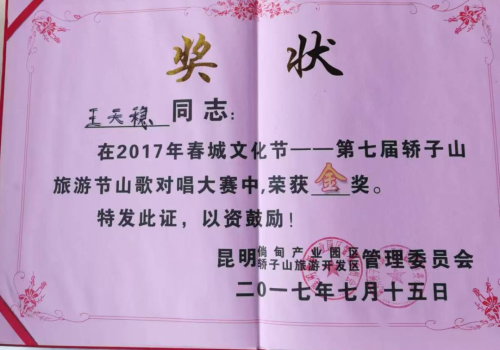 奖 状
王天稳 同志：
在2017年春城文化节——第七届轿子山
旅游节山歌对唱大赛中,荣获 金 奖。
特发此证，以资鼓励！
昆明倘甸产业园区轿子山旅游开发区管理委员会
二〇一七年七月十五日